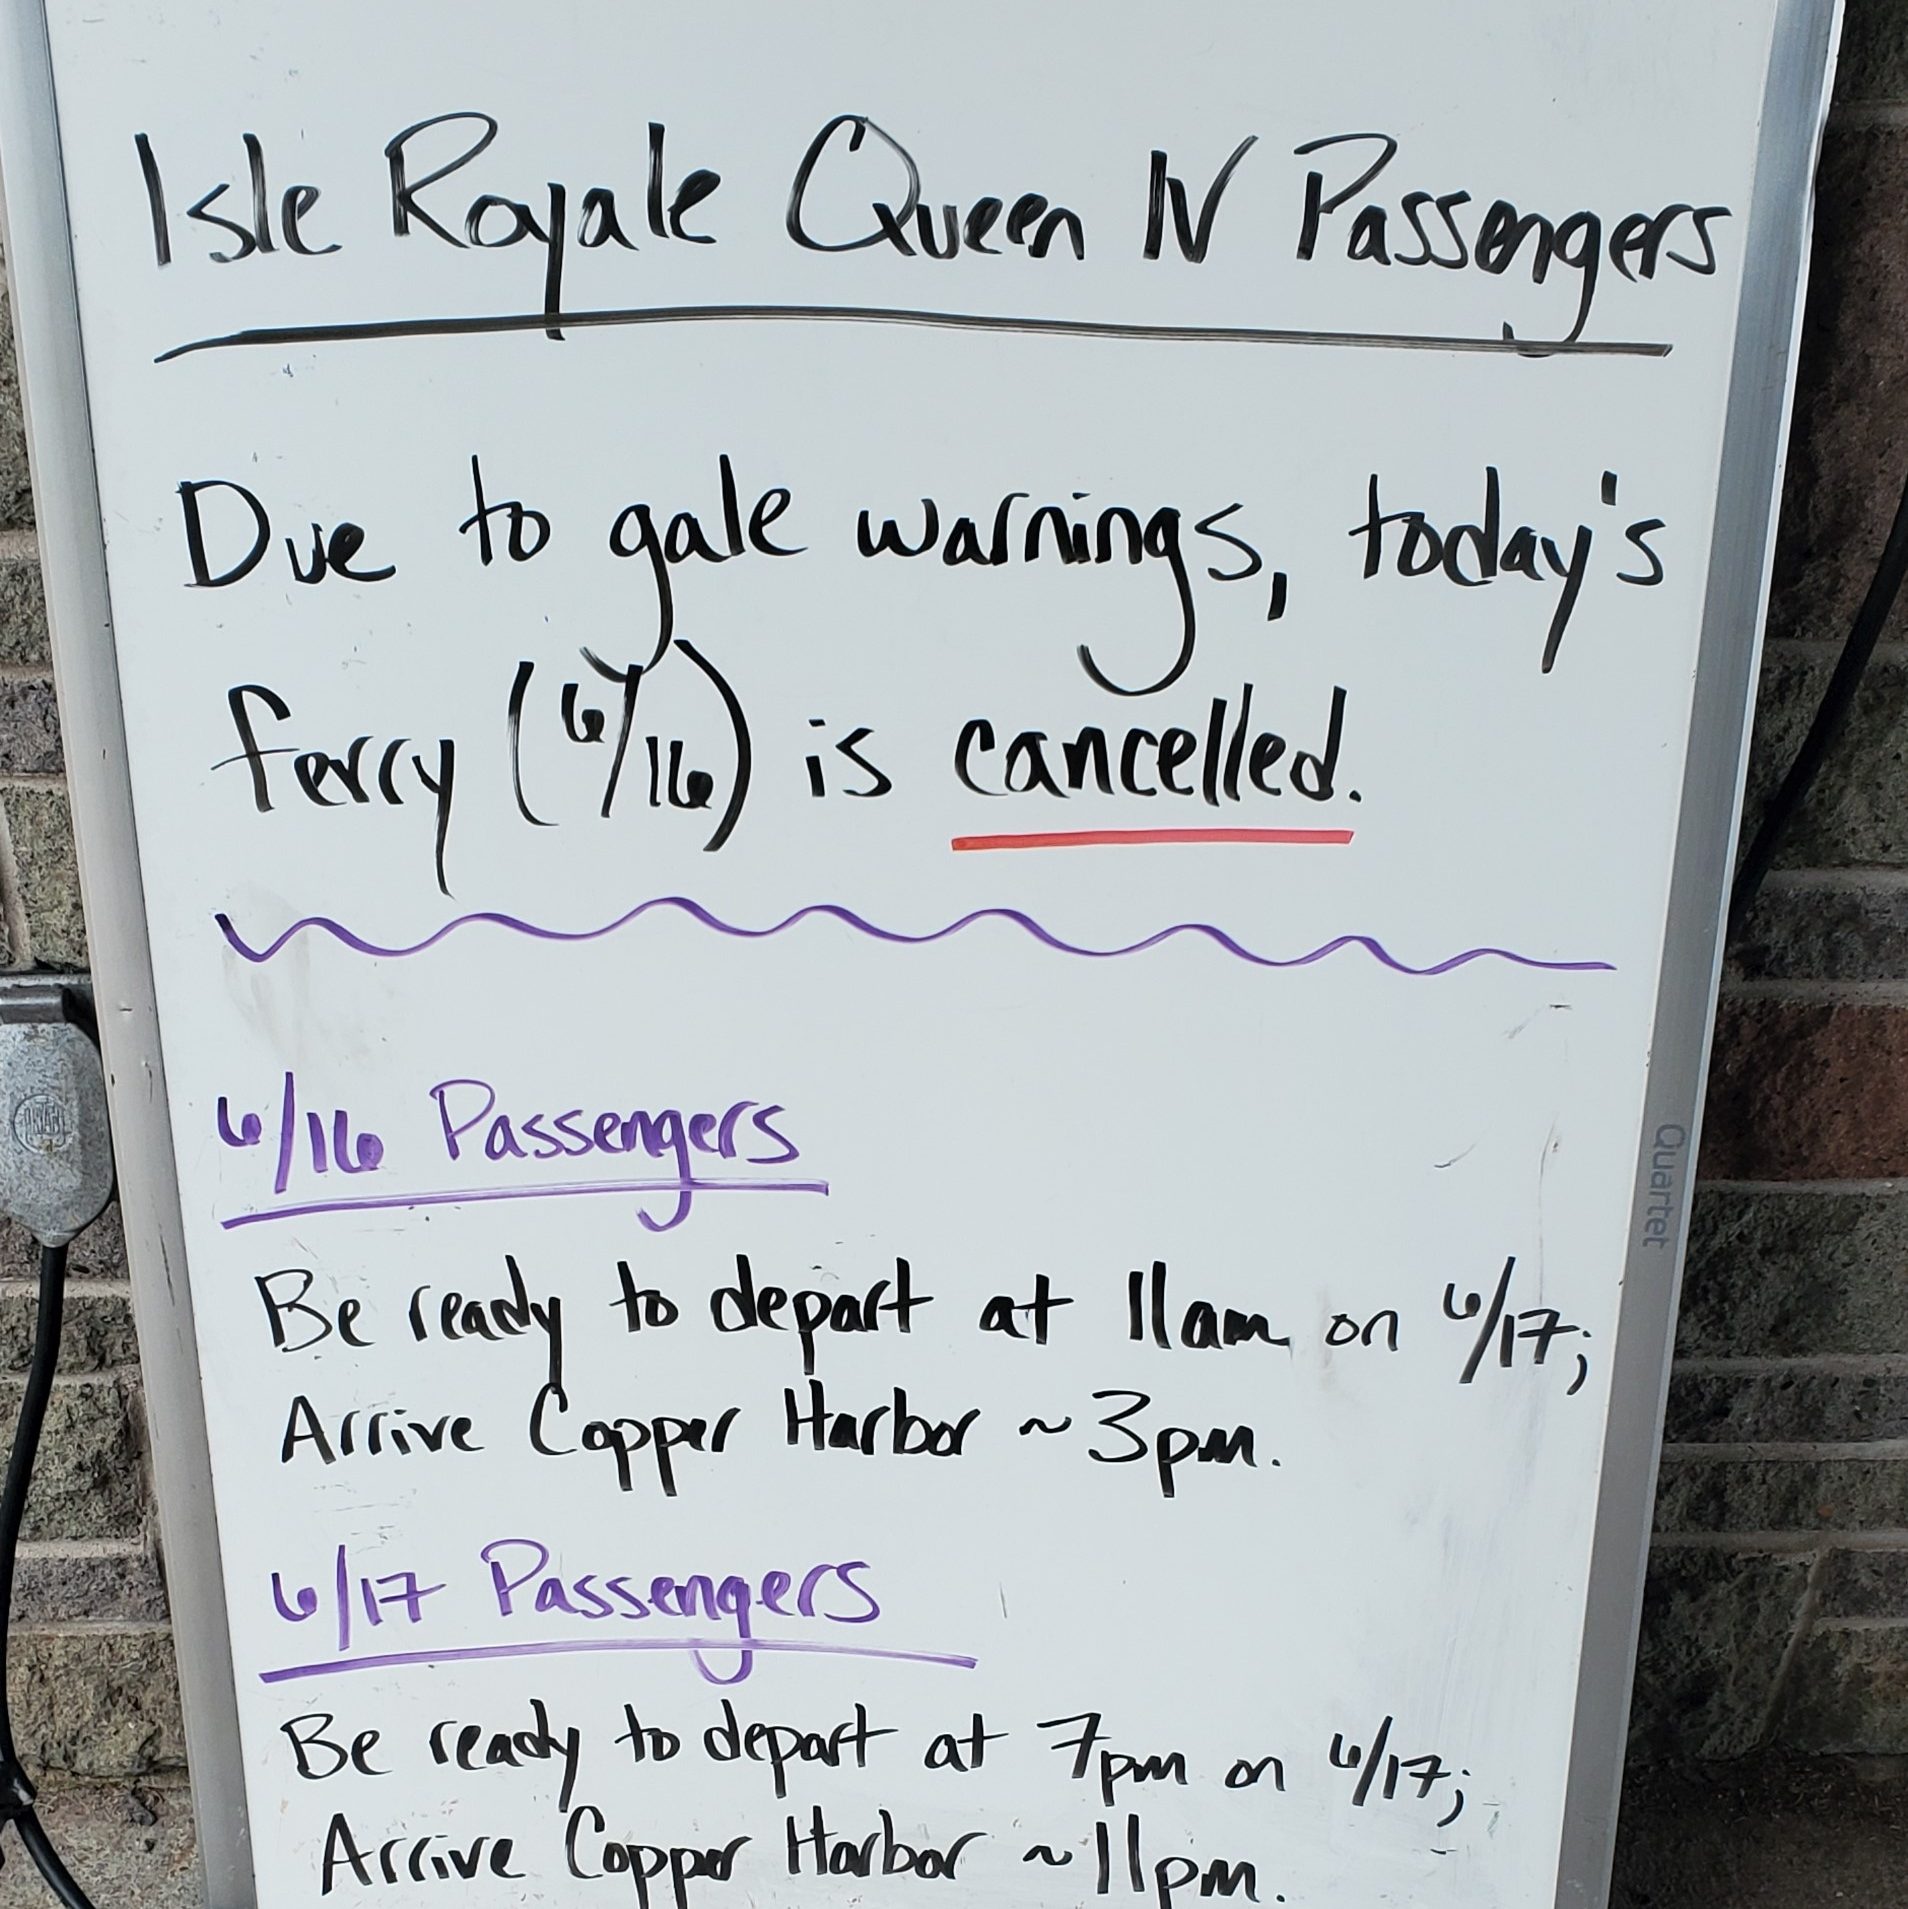 Isle Royale Queen IV Passengers
Due to gale warnings, today's
ferry (6/16) is cancelled.
6/16 Passengers
Be ready to depart at 11am on 6/17;
Arrive Copper Harbor ~3pm.
6/17 Passengers
Be ready to depart at 7pm on 6/17;
Arrive Copper Harbor ~11pm.
Quartet